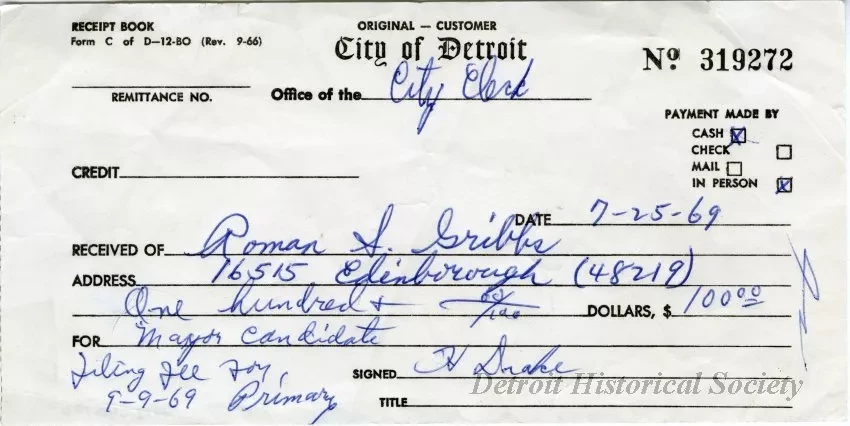 RECEIPT BOOK
Form C of D-12-BO (Rev. 9-66)
ORIGINAL — CUSTOMER
City of Detroit
Nº 319272
REMITTANCE NO.
Office of the City Clerk
PAYMENT MADE BY
CASH
CHECK
MAIL
IN PERSON
CREDIT
DATE 7-25-69
RECEIVED OF Roman S. Gribbs
ADDRESS 16515 Edinborough (48219)
One hundred + 00/100 DOLLARS, $ 100 00
FOR "Mayor Candidate
Filing fee for
SIGNED H Drake
9-9-69 Primary
TITLE
Detroit Historical Society